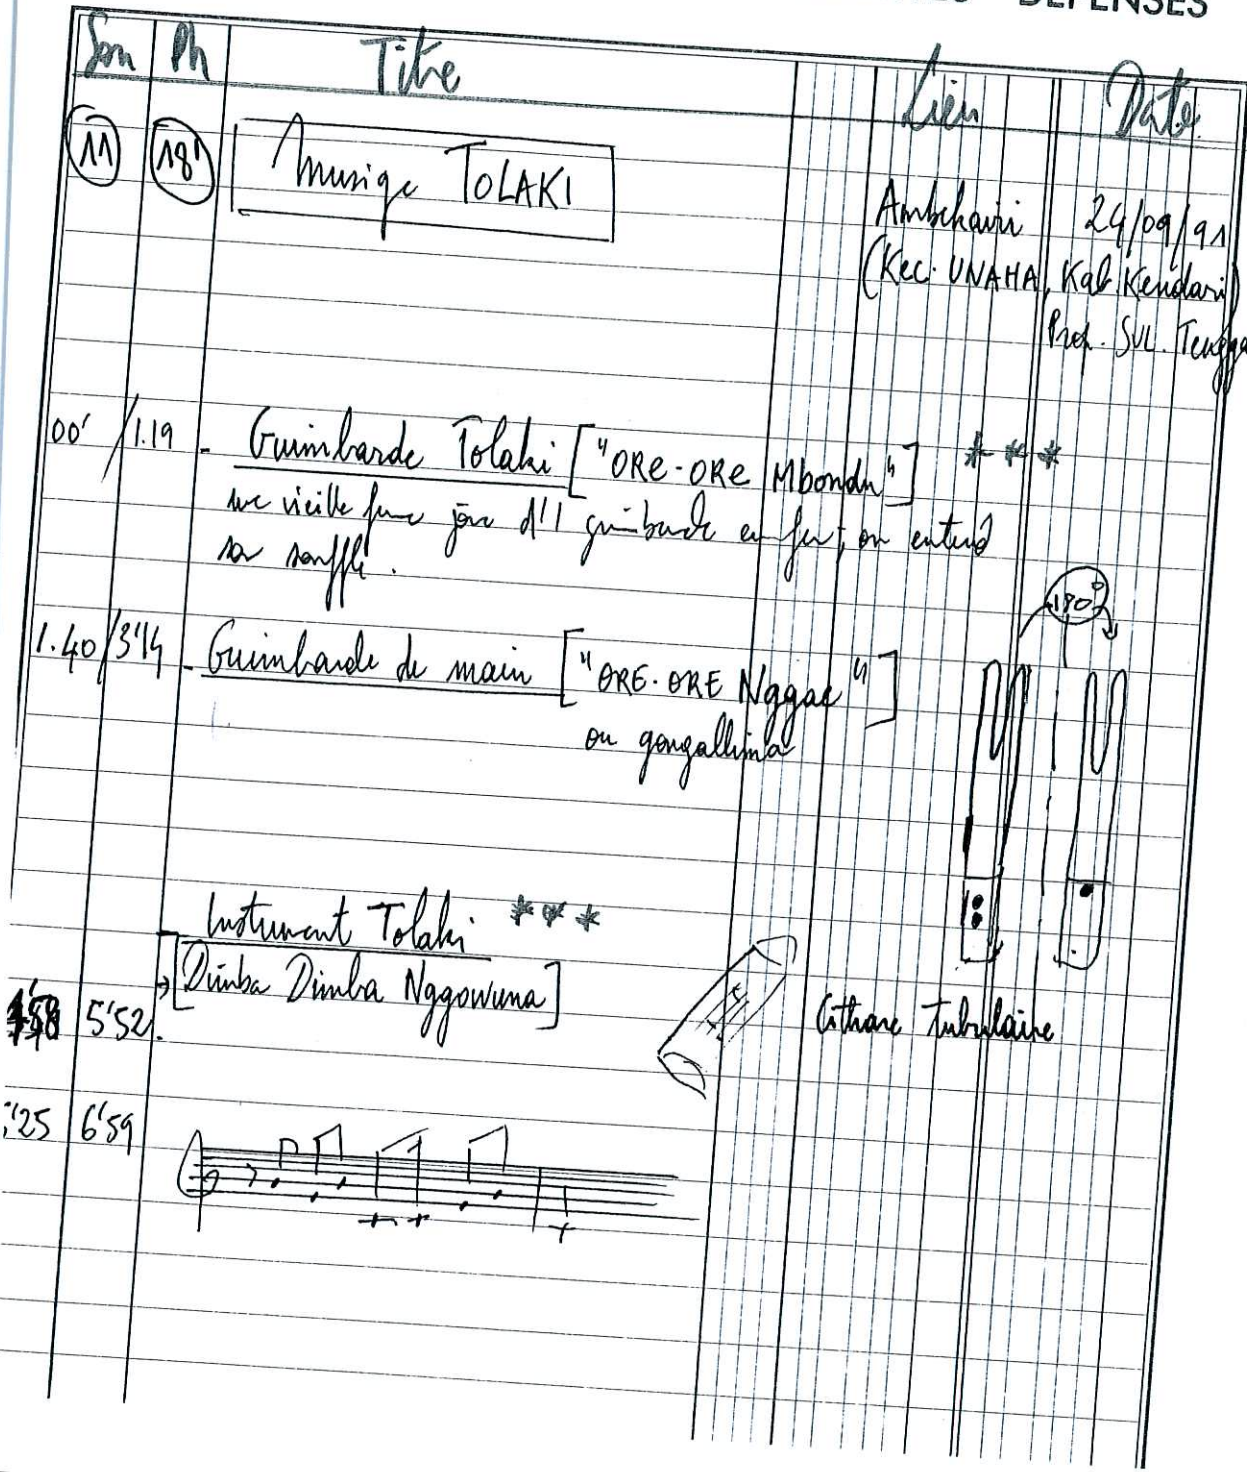 DEFENSES
Son Ph Titre Lieu Date
11 18' Musique TOLAKI
Ambekairi 24/09/91
(Kec. UNAHA, Kab. Kendari)
Prop. SUL. Tengga
00' / 1.19 - Guimbarde Tolaki ["ORE-ORE Mbondu"] ***
une vieille femme joue d'1 guimbarde en fer, on entend
son souffle.
180°
1.40 / 3'14 - Guimbarde de main ["ORE-ORE Nggae"]
ou gonggallima
Instrument Tolaki ***
→ [Dimba Dimba Nggowuna]
5'52 Cithare tubulaire
'25 6'59